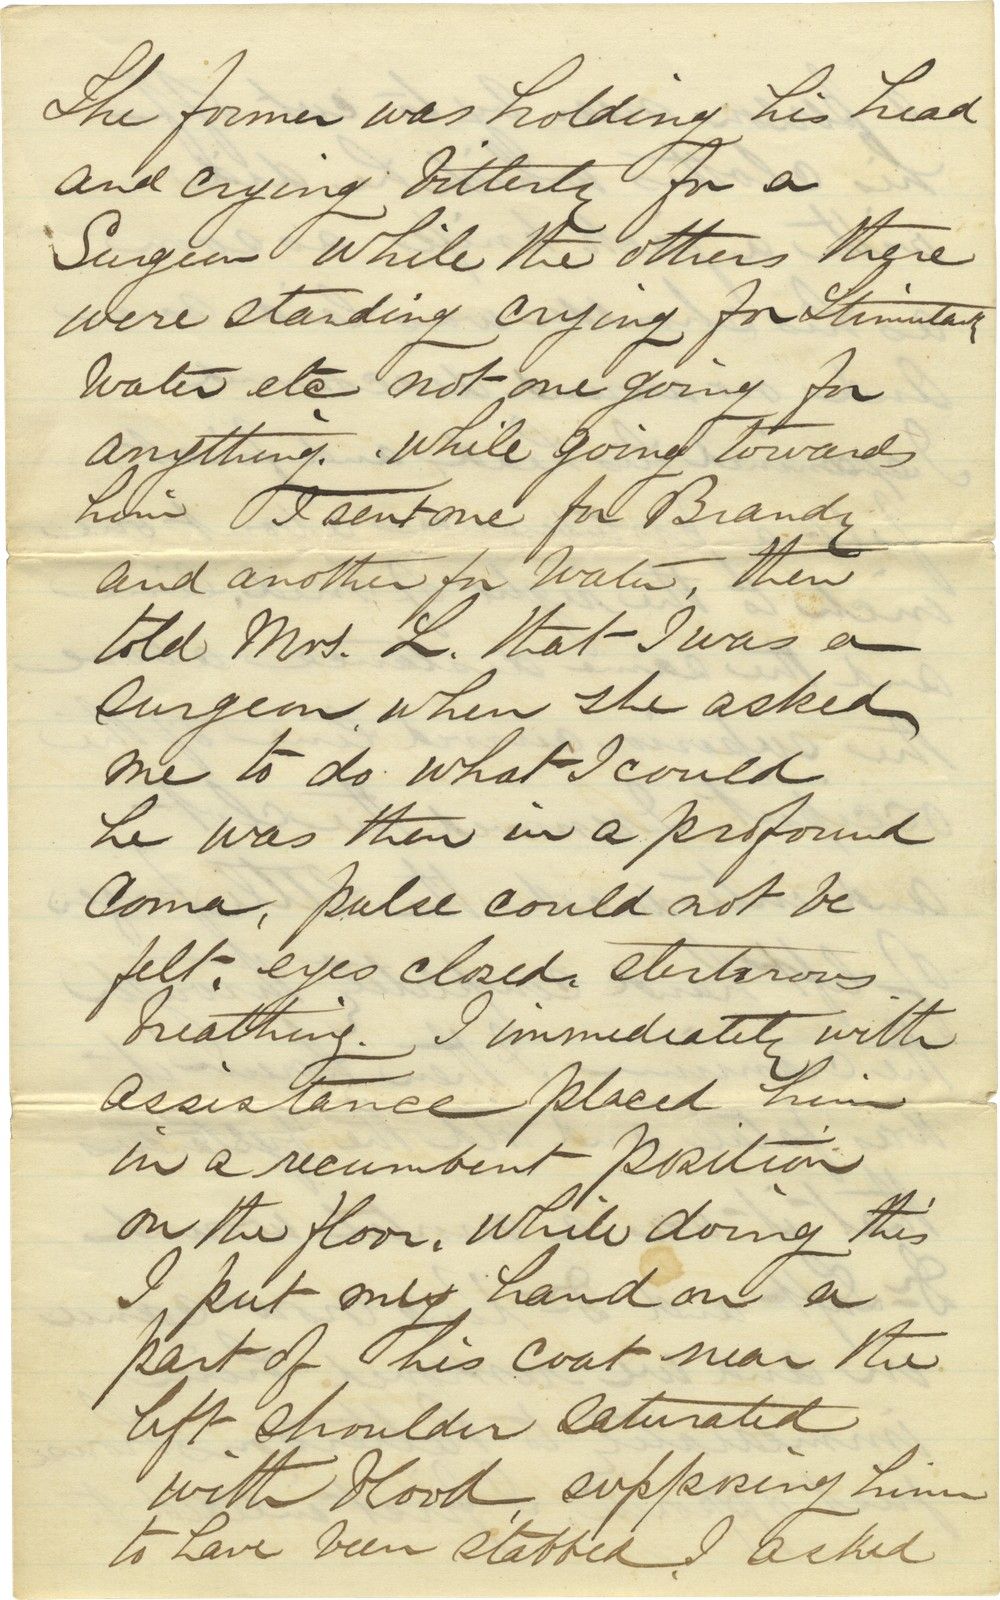 The former was holding his head
and crying bitterly for a
Surgeon while the others there
were standing crying for Stimulants
Water etc not one going for
anything. While going towards
him I sent one for Brandy
and another for Water, then
told Mrs. L. that I was a
surgeon, when she asked
me to do what I could
he was then in a profound
Coma, pulse could not be
felt, eyes closed, stertorous
breathing. I immediately with
assistance placed him
in a recumbent position
on the floor. While doing this
I put my hand on a
part of his coat near the
left shoulder saturated
with blood, supposing him
to have been stabbed I asked